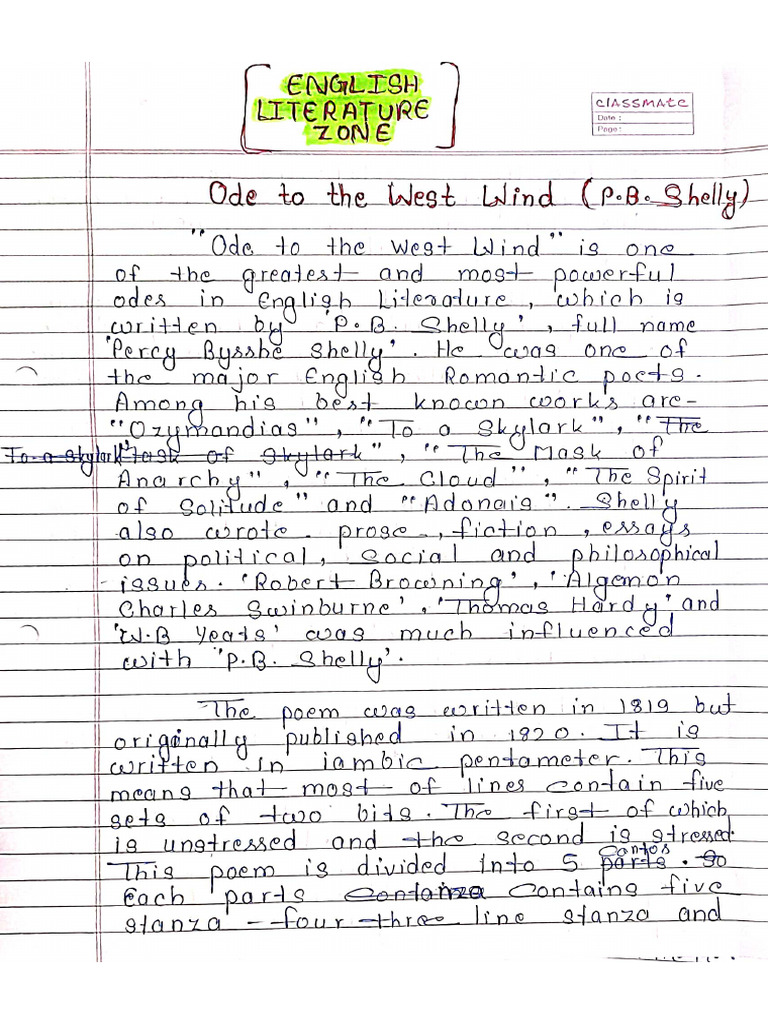 ENGLISH
LITERATURE
ZONE
CLASSMATE
Date :
Page :
Ode to the West Wind (P.B. Shelly)
"Ode to the West Wind" is one
of the greatest and most powerful
odes in English Literature, which is
written by 'P.B. Shelly', full name
'Percy Bysshe Shelly'. He was one of
the major English Romantic poets.
Among his best known works are-
"Ozymandias", "To a Skylark", "The
To a skylark" Mask of Skylark", "The Mask of
Anarchy", "The Cloud", "The Spirit
of Solitude" and "Adonais". Shelly
also wrote prose, fiction, essays
on political, social and philosophical
issues. 'Robert Browning', 'Algemon
Charles Swinburne', 'Thomas Hardy' and
'W.B Yeats' was much influenced
with 'P.B. Shelly'.
The poem was written in 1819 but
originally published in 1820. It is
written in iambic pentameter. This
means that most of lines contain five
sets of two bits. The first of which
is unstressed and the second is stressed.
This poem is divided into 5 parts. So
Cantos
Each parts Contains five
stanza - four three line stanza and